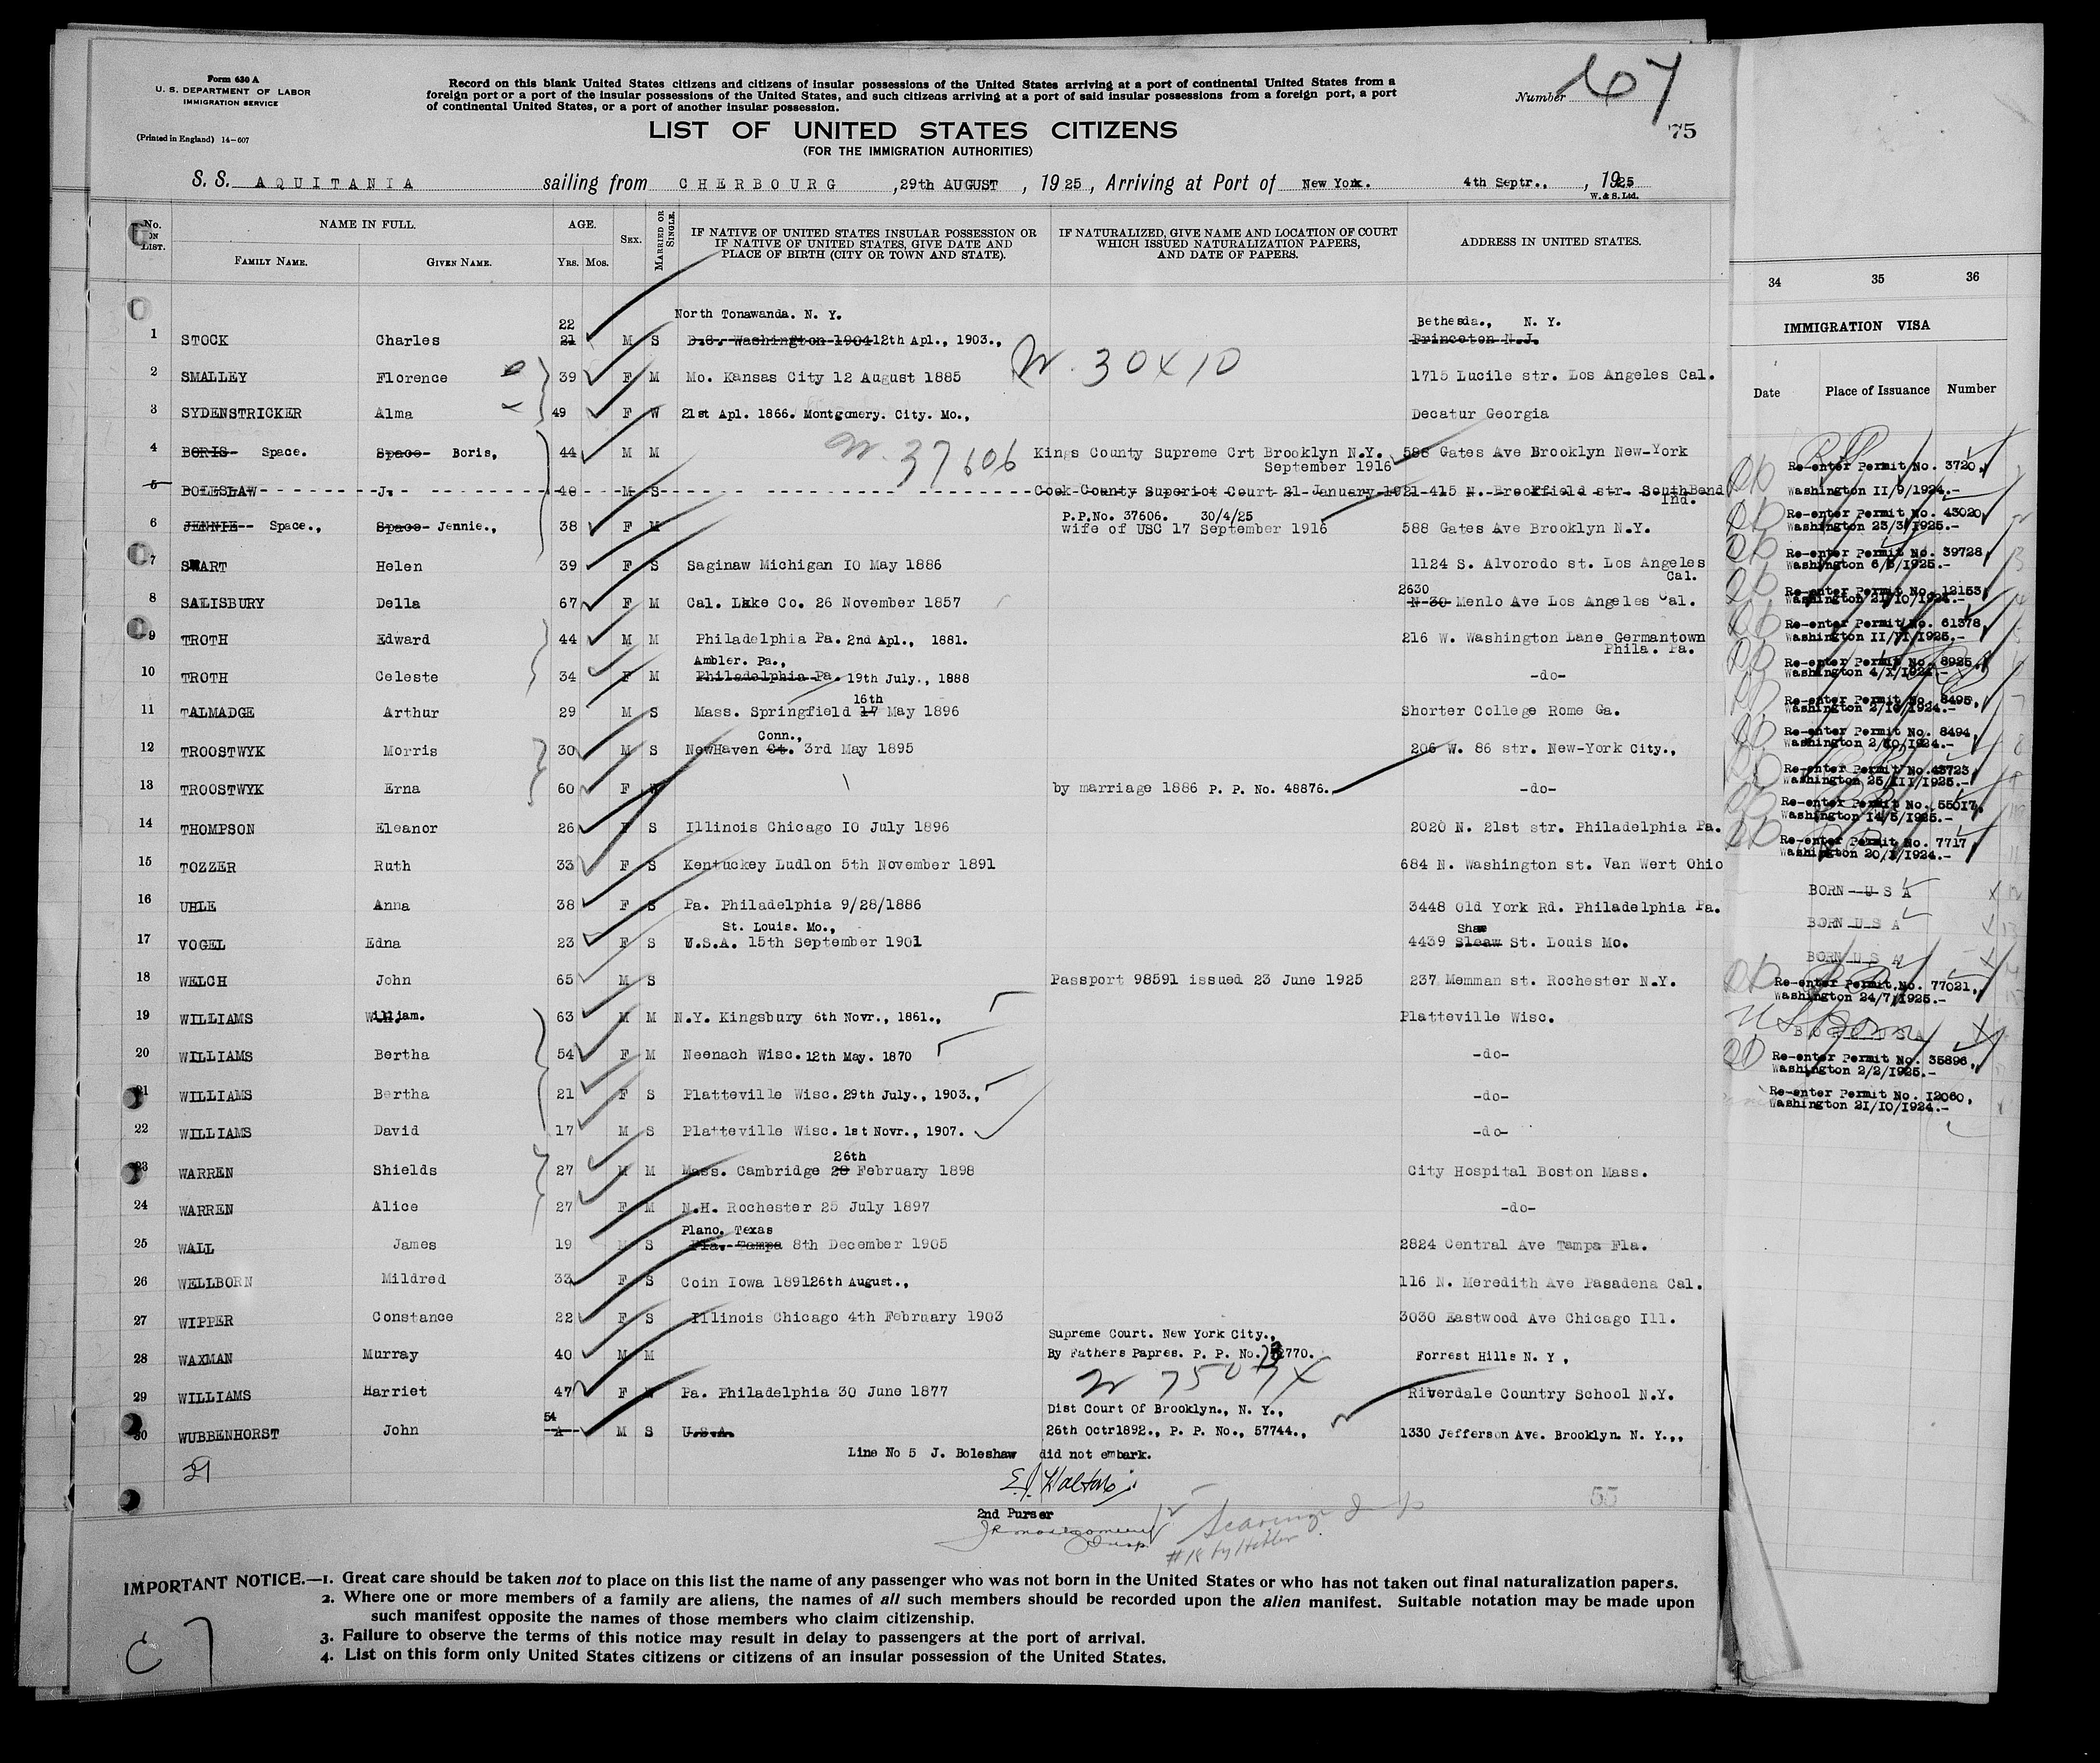 Form 630 A
U. S. DEPARTMENT OF LABOR
IMMIGRATION SERVICE
(Printed in England) 14-607
Record on this blank United States citizens and citizens of insular possessions of the United States arriving at a port of continental United States from a
foreign port or a port of the insular possessions of the United States, and such citizens arriving at a port of said insular possessions from a foreign port, a port
of continental United States, or a port of another insular possession.
Number 67
75
LIST OF UNITED STATES CITIZENS
(FOR THE IMMIGRATION AUTHORITIES)
S. S. AQUITANIA sailing from CHERBOURG, 29th AUGUST, 1925, Arriving at Port of New York. 4th Septr., , 1925
W. & S. Ltd.
No. ON LIST. NAME IN FULL. FAMILY NAME. GIVEN NAME. AGE. YRS. MOS. SEX. MARRIED OR SINGLE.
IF NATIVE OF UNITED STATES INSULAR POSSESSION OR
IF NATIVE OF UNITED STATES, GIVE DATE AND
PLACE OF BIRTH (CITY OR TOWN AND STATE).
IF NATURALIZED, GIVE NAME AND LOCATION OF COURT
WHICH ISSUED NATURALIZATION PAPERS,
AND DATE OF PAPERS.
ADDRESS IN UNITED STATES.
22 North Tonawanda. N. Y. Bethesda., N. Y.
1 STOCK Charles 21 M S D.C. Washington 1904 12th Apl., 1903., Princeton N.J.
2 SMALLEY Florence 39 F M Mo. Kansas City 12 August 1885 1715 Lucile str. Los Angeles Cal.
3 SYDENSTRICKER Alma 49 F W 21st Apl. 1866. Montgomery. City. Mo., Decatur Georgia
4 BORIS Space. Space Boris, 44 M M 37606 Kings County Supreme Crt Brooklyn N.Y. 588 Gates Ave Brooklyn New-York
September 1916
5 BOLESLAW J. 40 M S Cook County Superiot Court 21 January 1921 415 N. Brookfield str. SouthBend
Ind.
P.P.No. 37606. 30/4/25
6 JENNIE Space., Space Jennie., 38 F M wife of USC 17 September 1916 588 Gates Ave Brooklyn N.Y.
7 SWART Helen 39 F S Saginaw Michigan IO May 1886 1124 S. Alvorodo st. Los Angeles
Cal.
2630
8 SALISBURY Della 67 F M Cal. Lake Co. 26 November 1857 N 30 Menlo Ave Los Angeles Cal.
9 TROTH Edward 44 M M Philadelphia Pa. 2nd Apl., 1881. 216 W. Washington Lane Germantown
Phila. Pa.
Ambler. Pa.,
10 TROTH Celeste 34 F M Philadelphia Pa. 19th July., 1888 -do-
16th
11 TALMADGE Arthur 29 M S Mass. Springfield 17 May 1896 Shorter College Rome Ga.
Conn.,
12 TROOSTWYK Morris 30 M S NewHaven Ct. 3rd May 1895 206 W. 86 str. New-York City.,
13 TROOSTWYK Erna 60 F W by marriage 1886 P. P. No. 48876. -do-
14 THOMPSON Eleanor 26 F S Illinois Chicago IO July 1896 2020 N. 21st str. Philadelphia Pa.
15 TOZZER Ruth 33 F S Kentuckey Ludlon 5th November 1891 684 N. Washington st. Van Wert Ohio
16 UHLE Anna 38 F S Pa. Philadelphia 9/28/1886 3448 Old York Rd. Philadelphia Pa.
St. Louis. Mo., Shaw
17 VOGEL Edna 23 F S U.S.A. 15th September 1901 4439 Sleaw St. Louis Mo.
18 WELCH John 65 M S Passport 98591 issued 23 June 1925 237 Memman st. Rochester N.Y.
19 WILLIAMS William. 63 M M N.Y. Kingsbury 6th Novr., 1861., Platteville Wisc.
20 WILLIAMS Bertha 54 F M Neenach Wisc. 12th May. 1870 -do-
21 WILLIAMS Bertha 21 F S Platteville Wisc. 29th July., 1903., -do-
22 WILLIAMS David 17 M S Platteville Wisc. 1st Novr., 1907. -do-
26th
23 WARREN Shields 27 M M Mass. Cambridge 28 February 1898 City Hospital Boston Mass.
24 WARREN Alice 27 F M N.H. Rochester 25 July 1897 -do-
Plano. Texas
25 WALL James 19 M S Fla. Tampa 8th December 1905 2824 Central Ave Tampa Fla.
26 WELLBORN Mildred 33 F S Coin Iowa 1891 26th August., 116 N. Meredith Ave Pasadena Cal.
27 WIPPER Constance 22 F S Illinois Chicago 4th February 1903 3030 Eastwood Ave Chicago Ill.
Supreme Court. New York City.,
28 WAXMAN Murray 40 M M By Fathers Papres. P. P. No. 2770. Forrest Hills N. Y,
29 WILLIAMS Harriet 47 F W Pa. Philadelphia 30 June 1877 Riverdale Country School N.Y.
54 Dist Court Of Brooklyn., N. Y.,
30 WUBBENHORST John A M S U.S.A. 26th Octr1892., P. P. No., 57744., 1330 Jefferson Ave. Brooklyn. N. Y.,,
Line No 5 J. Boleshaw did not embark.
2nd Purser
55
IMPORTANT NOTICE.—1. Great care should be taken not to place on this list the name of any passenger who was not born in the United States or who has not taken out final naturalization papers.
2. Where one or more members of a family are aliens, the names of all such members should be recorded upon the alien manifest. Suitable notation may be made upon
such manifest opposite the names of those members who claim citizenship.
3. Failure to observe the terms of this notice may result in delay to passengers at the port of arrival.
4. List on this form only United States citizens or citizens of an insular possession of the United States.
34 35 36
IMMIGRATION VISA
Date Place of Issuance Number
Re-enter Permit No. 3720,
Washington II/9/1924.-
Re-enter Permit No. 43020,
Washington 23/3/1925.-
Re-enter Permit No. 39728,
Washington 6/3/1925.-
Re-enter Permit No. 12153,
Washington 21/10/1924.-
Re-enter Permit No. 61378,
Washington II/VI/1925.-
Re-enter Permit No. 8925,
Washington 4/X/1924.-
Re-enter Permit No. 8495,
Washington 2/10/1924.-
Re-enter Permit No. 8494,
Washington 2/10/1924.-
Re-enter Permit No. 43723,
Washington 25/III/1925.-
Re-enter Permit No. 55017,
Washington 14/5/1925.-
Re-enter Permit No. 7717,
Washington 20/X/1924.-
BORN U S A
BORN U S A
BORN U S A
Re-enter Permit No. 77021,
Washington 24/7/1925.-
Re-enter Permit No. 35896,
Washington 2/2/1925.-
Re-enter Permit No. I2060,
Washington 21/10/1924.-